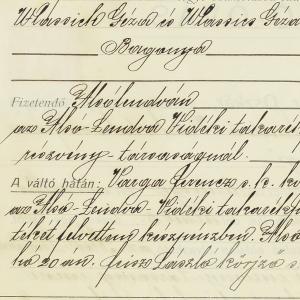 Wlassich Géza és Wlassics Géza
Bagonya
Fizetendő Alsólendván
az Alsó-Lendva Vidéki takaré
részvény-társaságnál.
A váltó hátán: Varga Ferencz s. k.
az Alsó-Lendva Vidéki takarékp
tékét felvettem készpénzben. Alsó
László körjző s